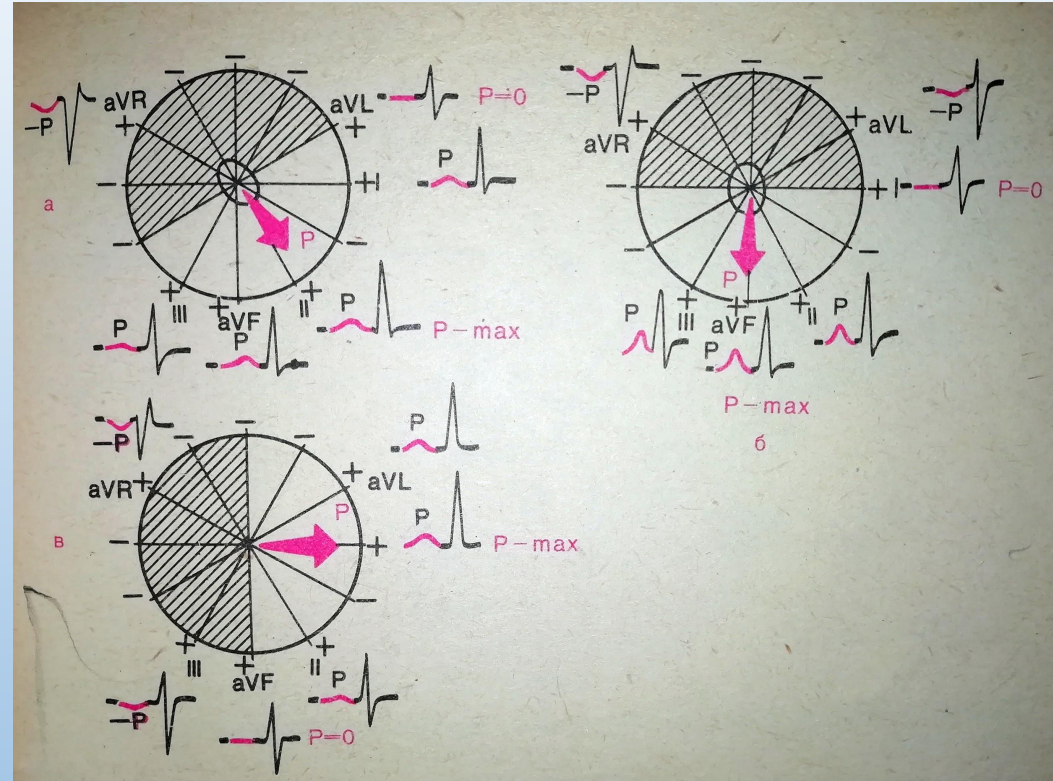 aVR
–P
aVL
P=0
P
I
а
P
III
P
aVF
P
II
P
P – max
–P
aVR
aVL
–P
I
P=0
P
P
III
aVF
P
II
P
P – max
б
–P
aVR
aVL
P
P
P
P – max
в
III
aVF
II
–P
P
P=0